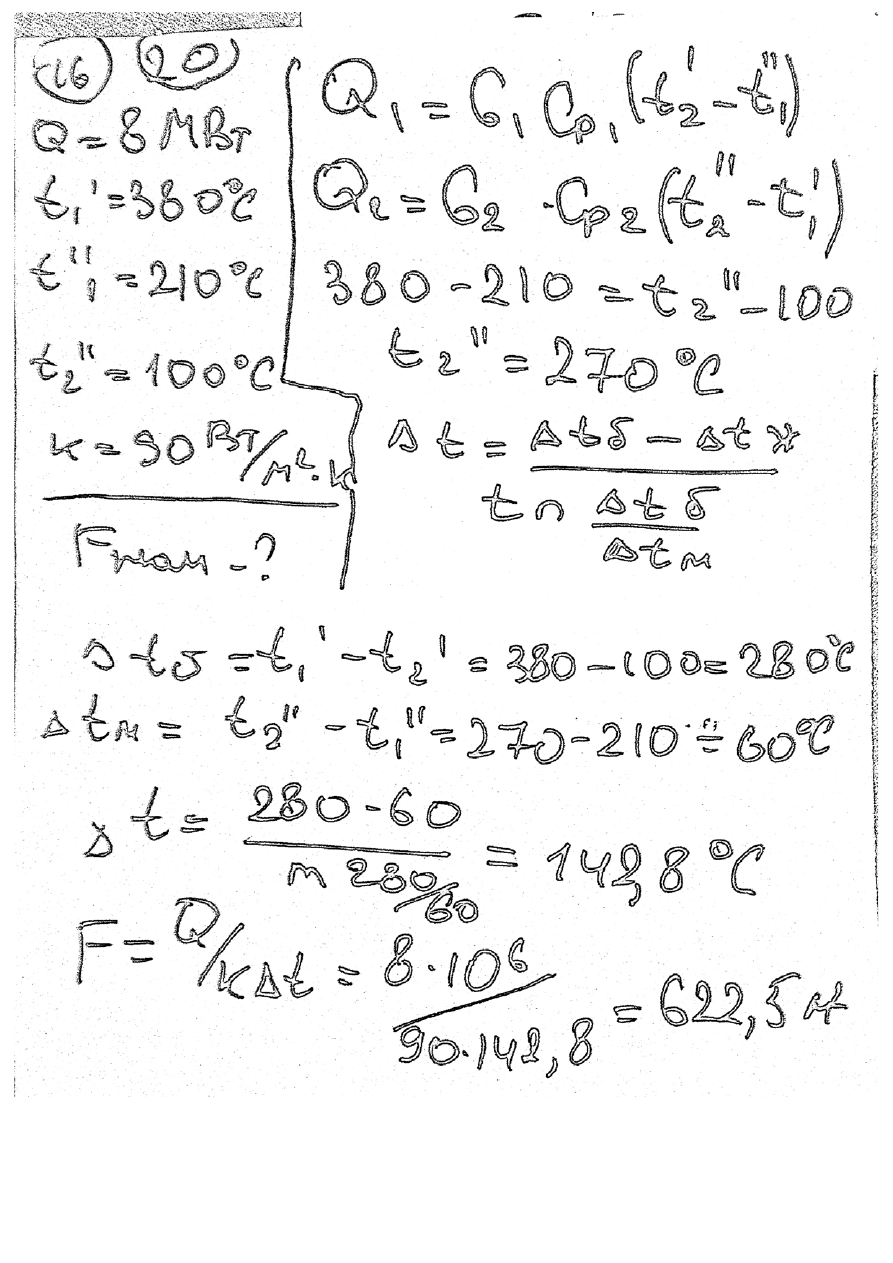 Е16 20
Q = 8 МВт
t₁' = 380°C
t₁'' = 210°C
t₂'' = 100°C
k = 90 Вт/м²·К
F -?
Q₁ = G₁ Cp₁ (t₂' - t₁'')
Q₂ = G₂ · Cp₂ (t₂'' - t₁')
380 - 210 = t₂'' - 100
t₂'' = 270°C
Δt = Δtб - Δtм
tn Δtб
Δtм
Δtб = t₁' - t₂' = 380 - 100 = 280°C
Δtм = t₂'' - t₁'' = 270 - 210 = 60°C
Δt = 280 - 60 = 142,8°C
n 280/60
F = Q/kΔt = 8·10⁶ = 622,5
90·142,8